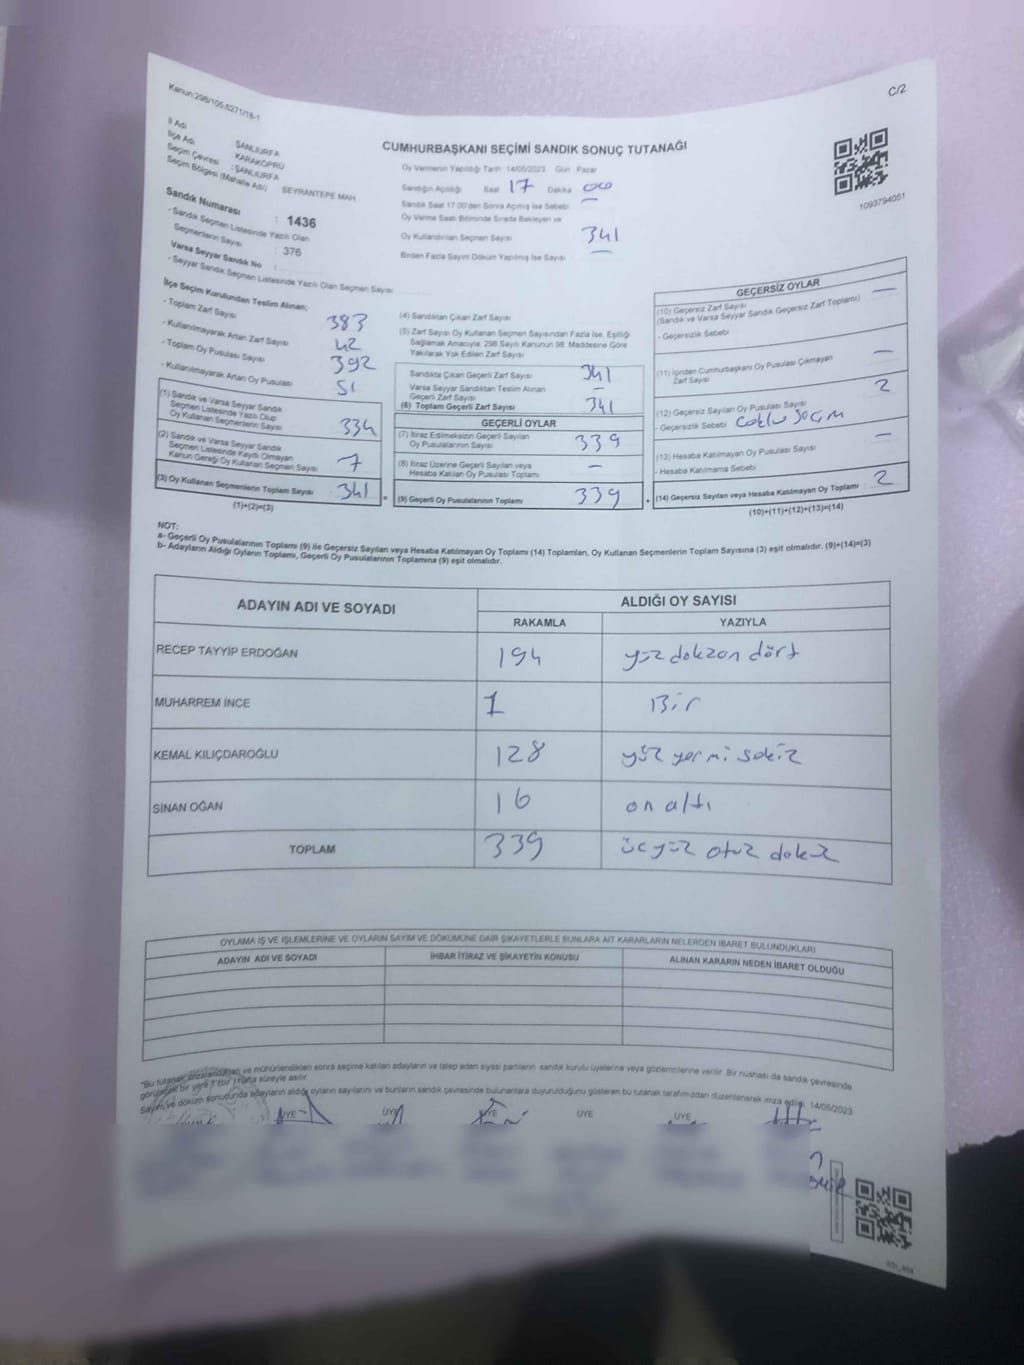 Kanun:298/105;6271/18-1
C/2
İl Adı ŞANLIURFA
İlçe Adı KARAKÖPRÜ
Seçim Çevresi :ŞANLIURFA
Seçim Bölgesi (Mahalle Adı) SEYRANTEPE MAH.
CUMHURBAŞKANI SEÇİMİ SANDIK SONUÇ TUTANAĞI
Oy Vermenin Yapıldığı Tarih 14/05/2023 Gün Pazar
Sandığın Açıldığı Saat 17 Dakika 00
Sandık Saat 17.00'den Sonra Açılmış İse Sebebi
Oy Verme Saati Bitiminde Sırada Bekleyen ve
Oy Kullandırılan Seçmen Sayısı 341
Birden Fazla Sayım Döküm Yapılmış İse Sayısı
1093794051
Sandık Numarası : 1436
- Sandık Seçmen Listesinde Yazılı Olan
Seçmenlerin Sayısı : 376
Varsa Seyyar Sandık No :
- Seyyar Sandık Seçmen Listesinde Yazılı Olan Seçmen Sayısı
İlçe Seçim Kurulundan Teslim Alınan;
- Toplam Zarf Sayısı 383
- Kullanılmayarak Artan Zarf Sayısı 42
- Toplam Oy Pusulası Sayısı 392
- Kullanılmayarak Artan Oy Pusulası 51
(1) Sandık ve Varsa Seyyar Sandık
Seçmen Listesinde Yazılı Olup
Oy Kullanan Seçmenlerin Sayısı 334
(2) Sandık ve Varsa Seyyar Sandık
Seçmen Listesinde Kayıtlı Olmayan
Kanun Gereği Oy Kullanan Seçmen Sayısı 7
(3) Oy Kullanan Seçmenlerin Toplam Sayısı 341
(1)+(2)=(3)
(4) Sandıktan Çıkan Zarf Sayısı
(5) Zarf Sayısı Oy Kullanan Seçmen Sayısından Fazla İse, Eşitliği
Sağlamak Amacıyla; 298 Sayılı Kanunun 98. Maddesine Göre
Yakılarak Yok Edilen Zarf Sayısı
Sandıkta Çıkan Geçerli Zarf Sayısı 341
Varsa Seyyar Sandıktan Teslim Alınan
Geçerli Zarf Sayısı –
(6) Toplam Geçerli Zarf Sayısı 341
GEÇERLİ OYLAR
(7) İtiraz Edilmeksizin Geçerli Sayılan
Oy Pusulalarının Sayısı 339
(8) İtiraz Üzerine Geçerli Sayılan veya
Hesaba Katılan Oy Pusulası Toplamı –
(9) Geçerli Oy Pusulalarının Toplamı 339
GEÇERSİZ OYLAR
(10) Geçersiz Zarf Sayısı –
(Sandık ve Varsa Seyyar Sandık Geçersiz Zarf Toplamı)
- Geçersizlik Sebebi
(11) İçinden Cumhurbaşkanı Oy Pusulası Çıkmayan
Zarf Sayısı –
(12) Geçersiz Sayılan Oy Pusulası Sayısı 2
- Geçersizlik Sebebi Coklu Seçim
(13) Hesaba Katılmayan Oy Pusulası Sayısı –
- Hesaba Katılmama Sebebi
(14) Geçersiz Sayılan veya Hesaba Katılmayan Oy Toplamı 2
(10)+(11)+(12)+(13)=(14)
NOT:
a- Geçerli Oy Pusulalarının Toplamı (9) ile Geçersiz Sayılan veya Hesaba Katılmayan Oy Toplamı (14) Toplamları, Oy Kullanan Seçmenlerin Toplam Sayısına (3) eşit olmalıdır. (9)+(14)=(3)
b- Adayların Aldığı Oyların Toplamı, Geçerli Oy Pusulalarının Toplamına (9) eşit olmalıdır.
ADAYIN ADI VE SOYADI ALDIĞI OY SAYISI
RAKAMLA YAZIYLA
RECEP TAYYİP ERDOĞAN 194 yüz dokzan dört
MUHARREM İNCE 1 Bir
KEMAL KILIÇDAROĞLU 128 yüz yermi sekiz
SİNAN OĞAN 16 on altı
TOPLAM 339 üçyüz otuz dokuz
OYLAMA İŞ VE İŞLEMLERİNE VE OYLARIN SAYIM VE DÖKÜMÜNE DAİR ŞİKAYETLERLE BUNLARA AİT KARARLARIN NELERDEN İBARET BULUNDUKLARI
ADAYIN ADI VE SOYADI İHBAR İTİRAZ VE ŞİKAYETİN KONUSU ALINAN KARARIN NEDEN İBARET OLDUĞU
"Bu tutanak imzalandıktan ve mühürlendikten sonra seçime katılan adayların ve talep eden siyasi partilerin sandık kurulu üyelerine veya gözlemcilerine verilir. Bir nüshası da sandık çevresinde
görülecek bir yere 1 (bir) hafta süreyle asılır.
Sayım ve döküm sonudunda adayların aldığı oyların sayılarını ve bunların sandık çevresinde bulunanlara duyurulduğunu gösteren bu tutanak tarafımızdan düzenlenerek imza edildi. 14/05/2023
ÜYE ÜYE ÜYE ÜYE ÜYE